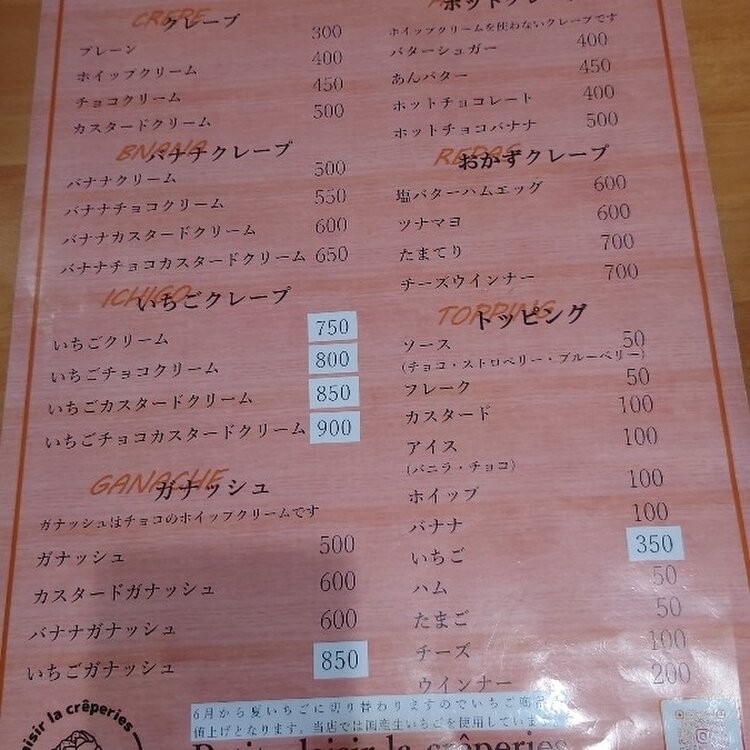 CREPE
クレープ
プレーン 300
ホイップクリーム 400
チョコクリーム 450
カスタードクリーム 500
BNANA
バナナクレープ
バナナクリーム 500
バナナチョコクリーム 550
バナナカスタードクリーム 600
バナナチョコカスタードクリーム 650
ICHIGO
いちごクレープ
いちごクリーム 750
いちごチョコクリーム 800
いちごカスタードクリーム 850
いちごチョコカスタードクリーム 900
GANACHE
ガナッシュ
ガナッシュはチョコのホイップクリームです
ガナッシュ 500
カスタードガナッシュ 600
バナナガナッシュ 600
いちごガナッシュ 850
ホットクレープ
ホイップクリームを使わないクレープです
バターシュガー 400
あんバター 450
ホットチョコレート 400
ホットチョコバナナ 500
REPAS
おかずクレープ
塩バターハムエッグ 600
ツナマヨ 600
たまてり 700
チーズウインナー 700
TOPPING
トッピング
ソース 50
(チョコ・ストロベリー・ブルーベリー)
フレーク 50
カスタード 100
アイス 100
(バニラ・チョコ)
ホイップ 100
バナナ 100
いちご 350
ハム 50
たまご 50
チーズ 100
ウインナー 200
6月から夏いちごに切り替わりますのでいちご商
値上げとなります。当店では国産生いちごを使用していま
la crêperies